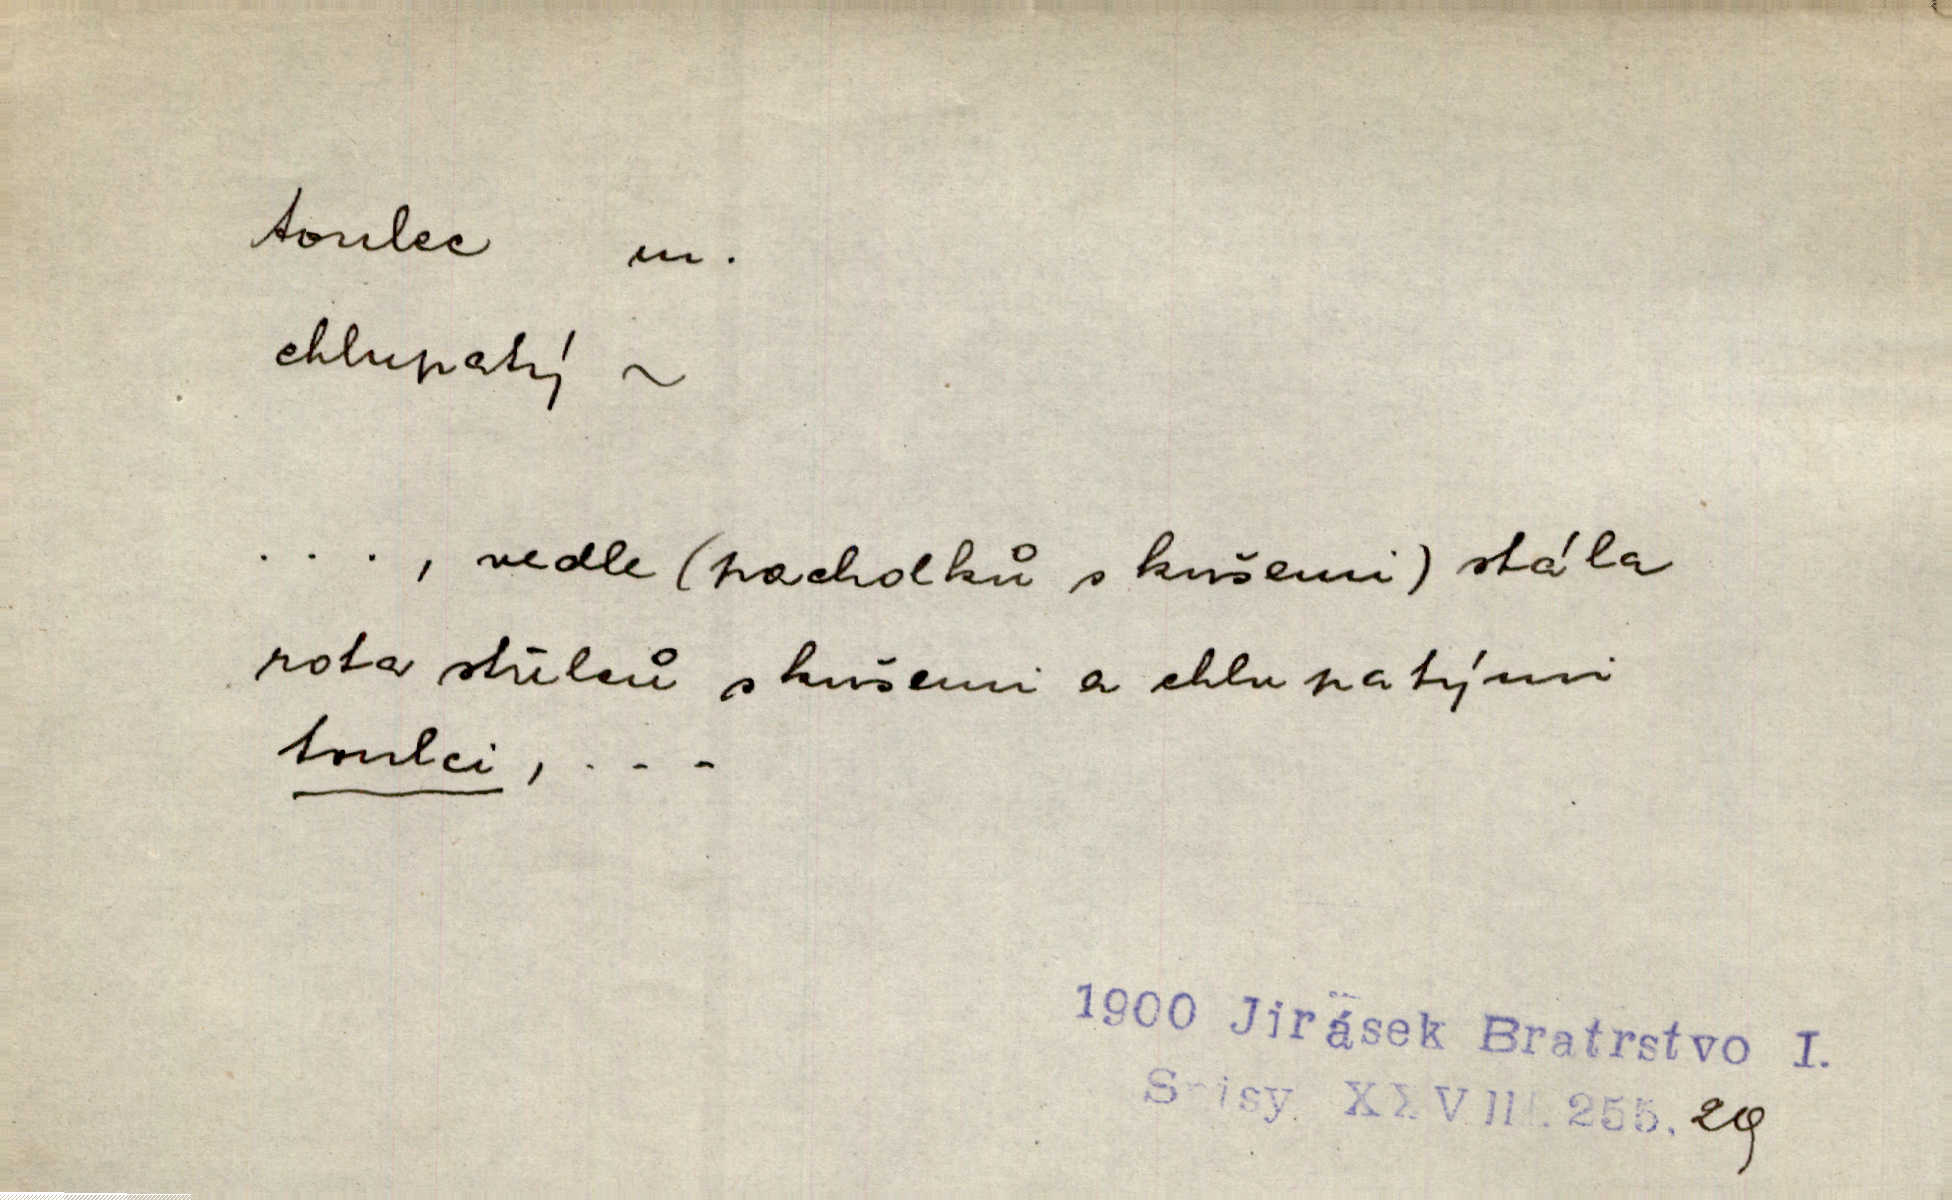 toulec m.
chlupatý ~
. . . , vedle (pacholků s kušemi) stála
rota střelců s kušemi a chlupatými
toulci, . - -
1900 Jirásek Bratrstvo I.
Spisy XXVIII. 255. 29